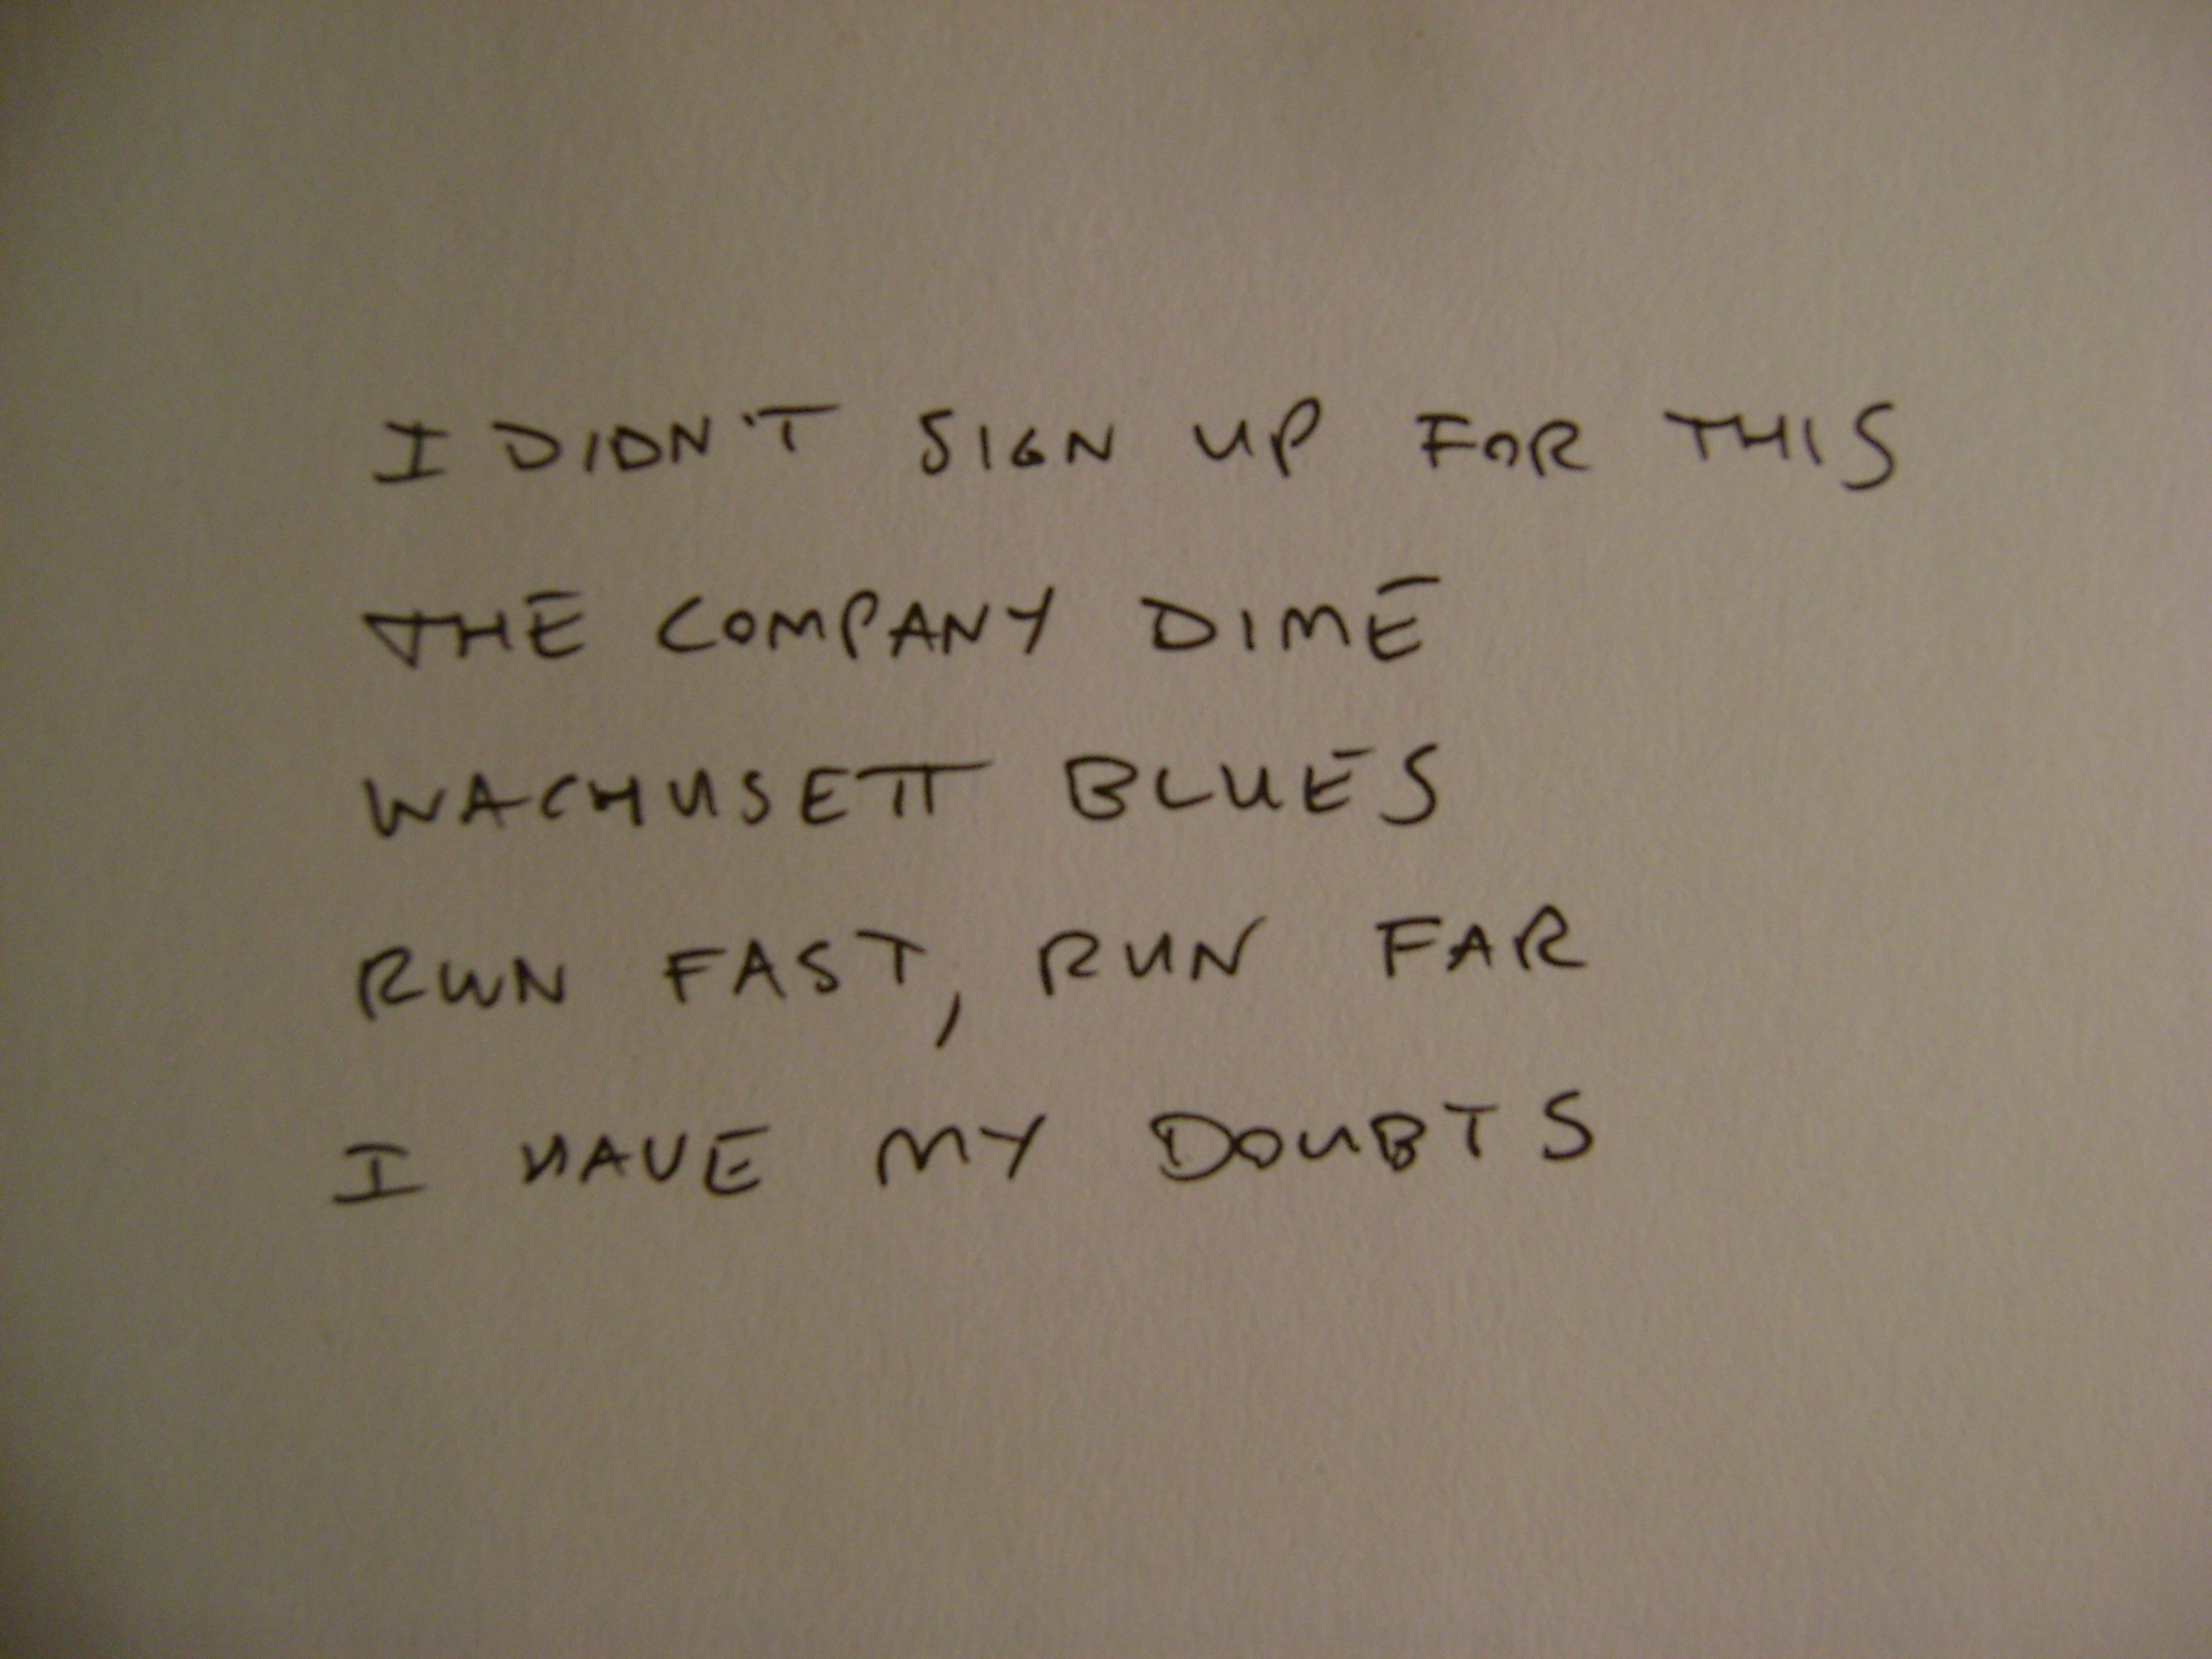 I DIDN'T SIGN UP FOR THIS
THE COMPANY DIME
WACHUSETT BLUES
RUN FAST, RUN FAR
I HAVE MY DOUBTS